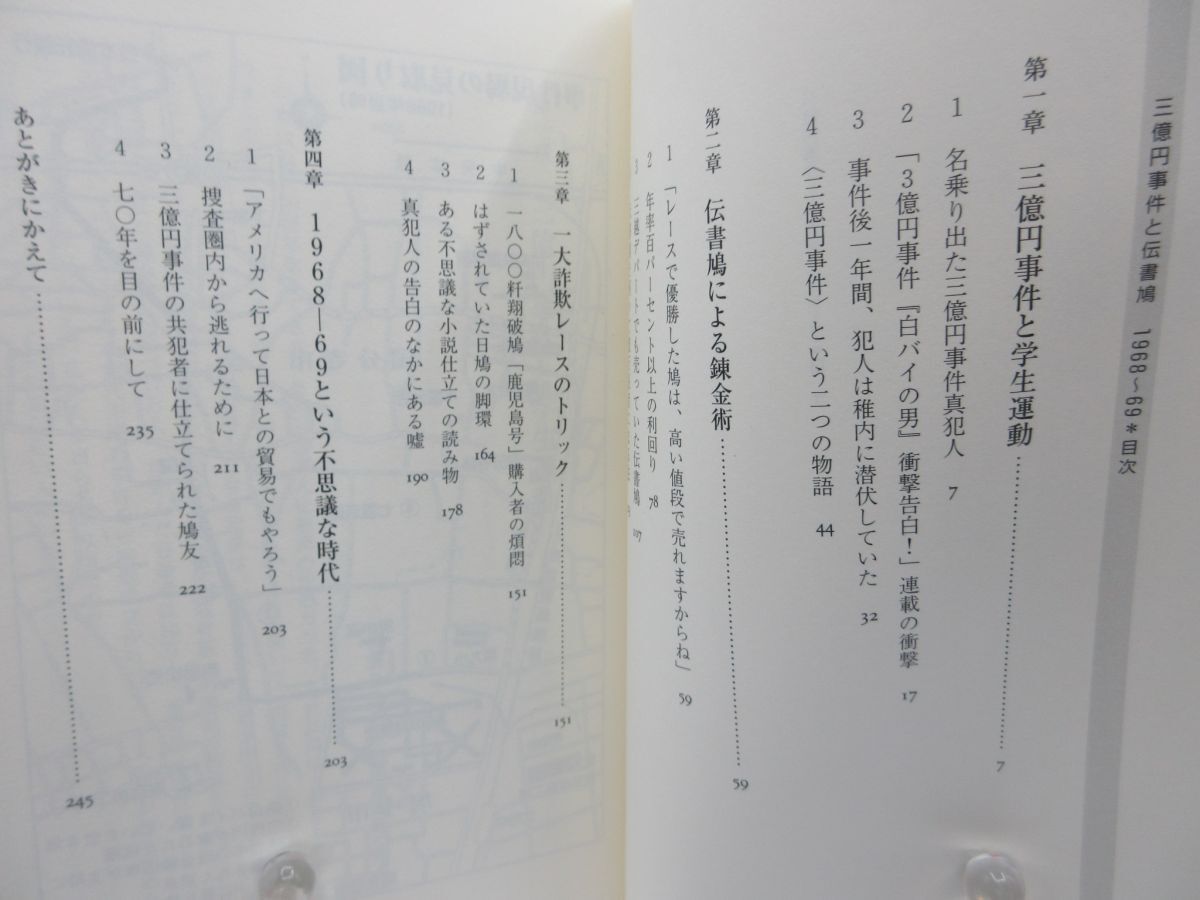 三億円事件と伝書鳩 1968〜69＊目次
第一章 三億円事件と学生運動……………………7
1 名乗り出た三億円事件真犯人 7
2 「3億円事件『白バイの男』衝撃告白！」連載の衝撃 17
3 事件後一年間、犯人は稚内に潜伏していた 32
4 〈三億円事件〉という二つの物語 44
第二章 伝書鳩による錬金術……………………59
1 「レースで優勝した鳩は、高い値段で売れますからね」 59
2 年率百パーセント以上の利回り 78
3 三越デパートでも売っていた伝書鳩 107
第三章 一大詐欺レースのトリック……………………151
1 一八〇〇粁翔破鳩「鹿児島号」購入者の煩悶 151
2 はずされていた日鳩の脚環 164
3 ある不思議な小説仕立ての読み物 178
4 真犯人の告白のなかにある嘘 190
第四章 1968―69という不思議な時代……………………203
1 「アメリカへ行って日本との貿易でもやろう」 203
2 捜査圏内から逃れるために 211
3 三億円事件の共犯者に仕立てられた鳩友 222
4 七〇年を目の前にして 235
あとがきにかえて……………………245